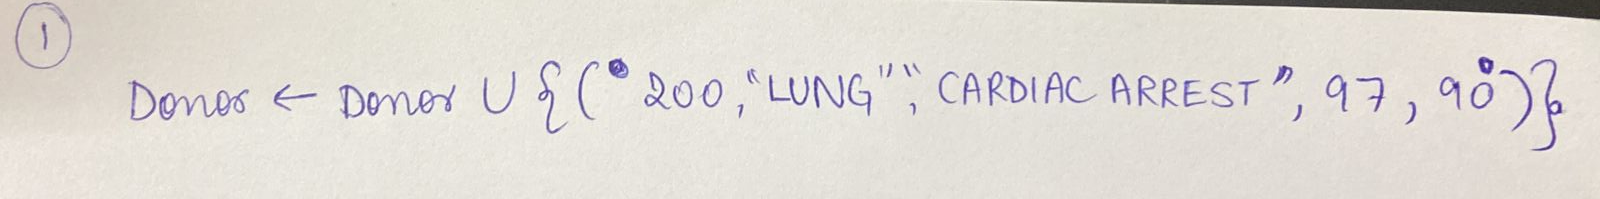 1
Donor ← Donor ∪ {(200, "LUNG", "CARDIAC ARREST", 97, 90)}